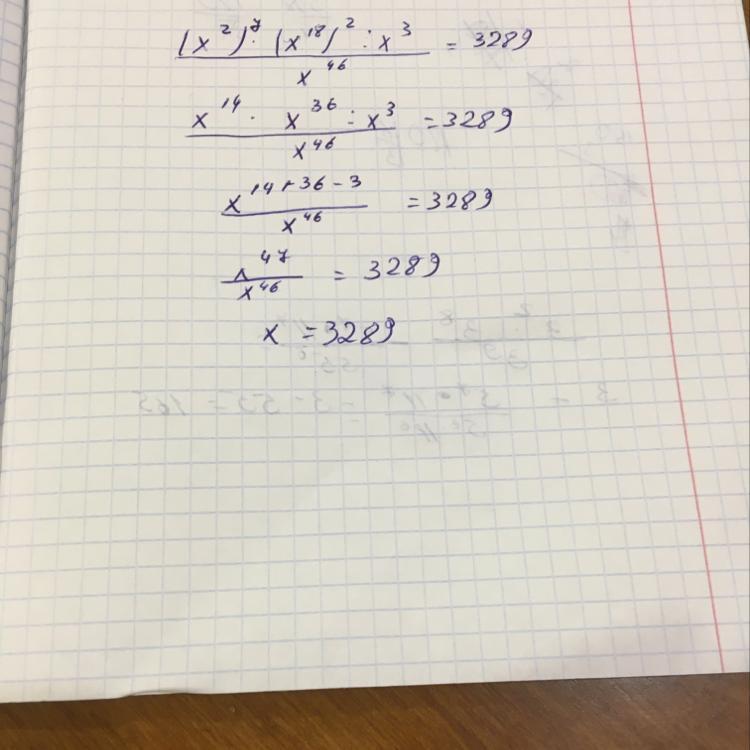 (x²)⁷ · (x¹⁸)² : x³ / x⁴⁶ = 3289
x¹⁴ · x³⁶ : x³ / x⁴⁶ = 3289
x¹⁴⁺³⁶⁻³ / x⁴⁶ = 3289
x⁴⁷ / x⁴⁶ = 3289
x = 3289